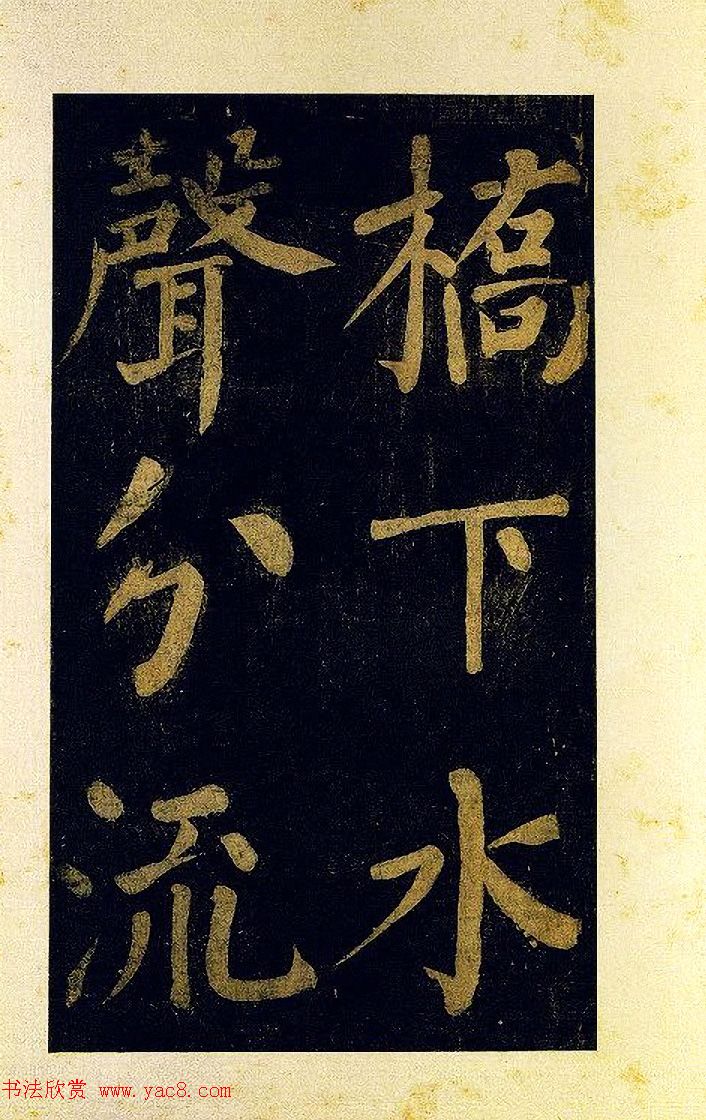 橋下水
聲分流
书法欣赏 www.yac8.com